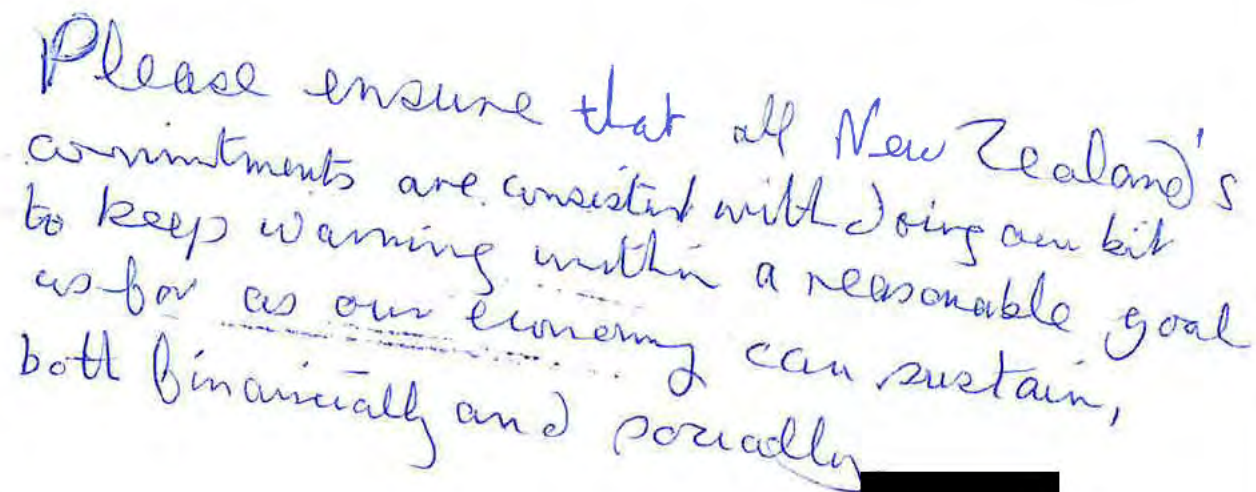 Please ensure that all New Zealand's
commitments are consistent with doing our bit
to keep warming within a reasonable goal
as far as our economy can sustain,
both financially and socially